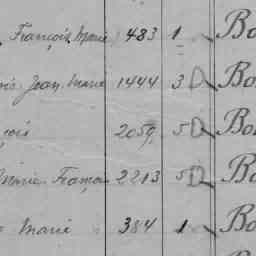 François Marie 483 1 Bo
Jean Marie 1444 3 D Bo
2059 5 D Bo
Marie François 2213 5 D Bo
Marie 384 1 Bo